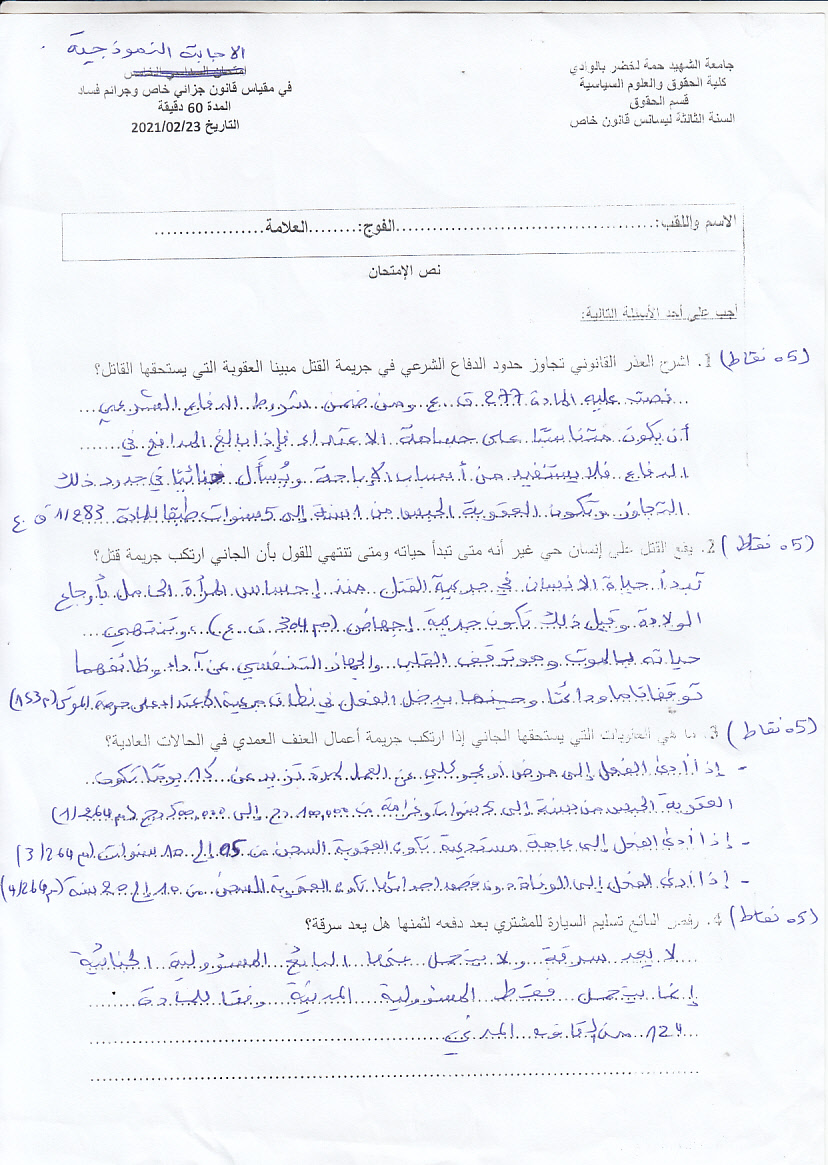 جامعة الشهيد حمة لخضر بالوادي
كلية الحقوق والعلوم السياسية
قسم الحقوق
السنة الثالثة ليسانس قانون خاص
الاجابة النموذجية
في مقياس قانون جزائي خاص وجرائم فساد
المدة 60 دقيقة
التاريخ 2021/02/23
الاسم واللقب:.......................................الفوج:........العلامة..................
نص الإمتحان
أجب على أحد الأسئلة التالية:
(05 نقاط) 1. اشرح العذر القانوني تجاوز حدود الدفاع الشرعي في جريمة القتل مبينا العقوبة التي يستحقها القاتل؟
نصت عليه المادة 277 ق ع ومن ضمن شروط الدفاع الشرعي
أن يكون متناسبا على جسامة الاعتداء فإذا بالغ المدافع في
الدفاع فلا يستفيد من أسباب الإباحة ويُسأل جنائيا في حدود ذلك
التجاوز وتكون العقوبة الحبس من 1 سنة إلى 5 سنوات طبقا للمادة 1/283 ق ع
(05 نقاط) 2. يقع القتل على إنسان حي غير أنه متى تبدأ حياته ومتى تنتهي للقول بأن الجاني ارتكب جريمة قتل؟
تبدأ حياة الانسان في جريمة القتل منذ إحساس المرأة الحامل بأوجاع
الولادة وقبل ذلك تكون جريمة إجهاض (م 304 ق ع) وتنتهي
حياته بالموت وهو توقف القلب والجهاز التنفسي عن آداء وظائفهما
توقفا تاما ودائما وحينها يدخل الفعل في نطاق جريمة الاعتداء على حرمة الموتى (م 153)
(05 نقاط) 3. ما هي العقوبات التي يستحقها الجاني إذا ارتكب جريمة أعمال العنف العمدي في الحالات العادية؟
- إذا أدى الفعل إلى مرض أو عجز كلي عن العمل لمدة تزيد عن 15 يوما تكون
العقوبة الحبس من سنة إلى 5 سنوات وغرامة من 100,000 دج إلى 500,000 دج (م 1/264)
- إذا أدى الفعل إلى عاهة مستديمة تكون العقوبة السجن من 05 إلى 10 سنوات (م 3/264)
- إذا أدى الفعل إلى الوفاة دون قصد احداثها تكون العقوبة السجن من 10 إلى 20 سنة (م 4/264)
(05 نقاط) 4. رفض البائع تسليم السيارة للمشتري بعد دفعه لثمنها هل يعد سرقة؟
لا يعد سرقة ولا يتحمل البائع المسؤولية الجنائية
إنما يتحمل فقط المسؤولية المدنية وفقا للمادة
124 من القانون المدني